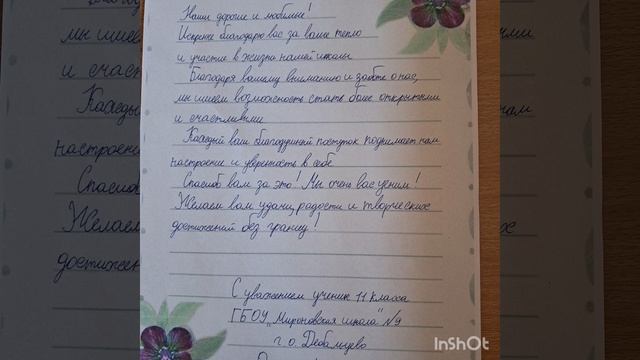 Наши дорогие и любимые!
Искренне благодарю вас за ваше тепло
и участие в жизни нашей школы
Благодаря вашему вниманию и заботе о нас,
мы имеем возможность стать более открытыми
и счастливыми
Каждый ваш благодушный поступок поднимает нам
настроение и уверенность в себе
Спасибо вам за это! Мы очень вас ценим!
Желаем вам удачи, радости и творческих
достижений без границ!
С уважением ученик 11 класса
ГБОУ „Мироновская школа" №9
г.о. Дебальцево
InShOt